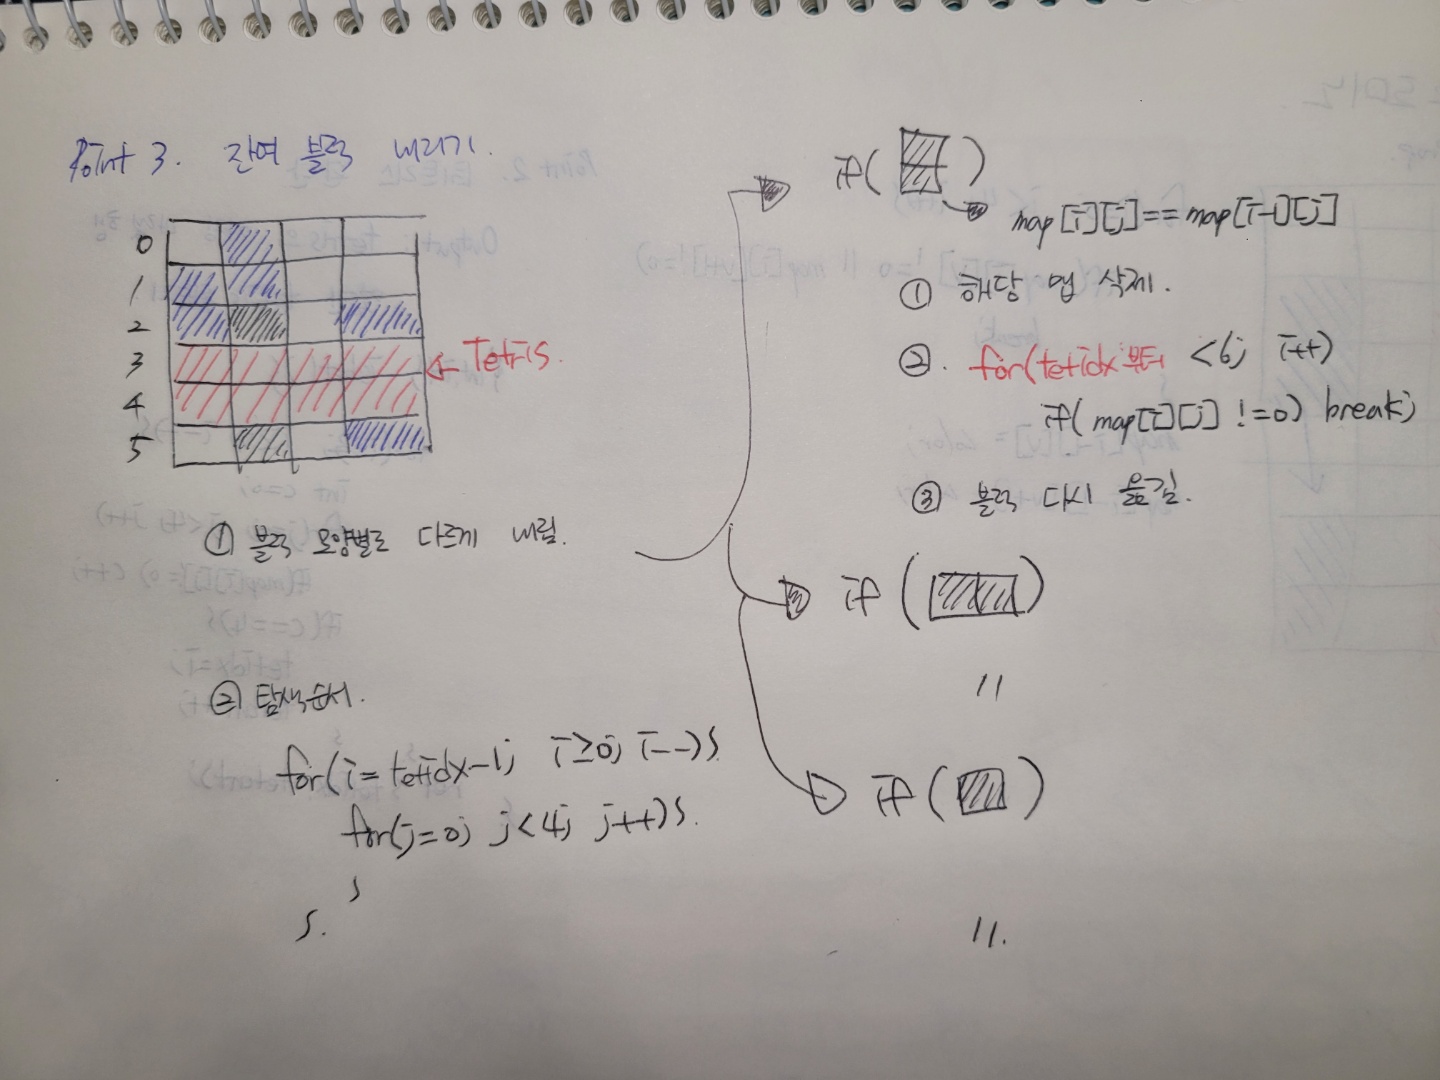 Point 3. 잔여 블럭 내리기.
0
1
2
3
4
5
← Tetris.
① 블럭 모양별로 다르게 내림.
② 탐색순서.
for(i = tetidx-1; i≥0; i--){
for(j=0; j<4; j++){
}
}.
if( )
map[i][j]==map[i-1][j]
① 해당 맵 삭제.
②. for(tetidx부터 <6; i++)
if(map[i][j] !=0) break;
③ 블럭 다시 옮김.
if ( )
"
if ( )
".